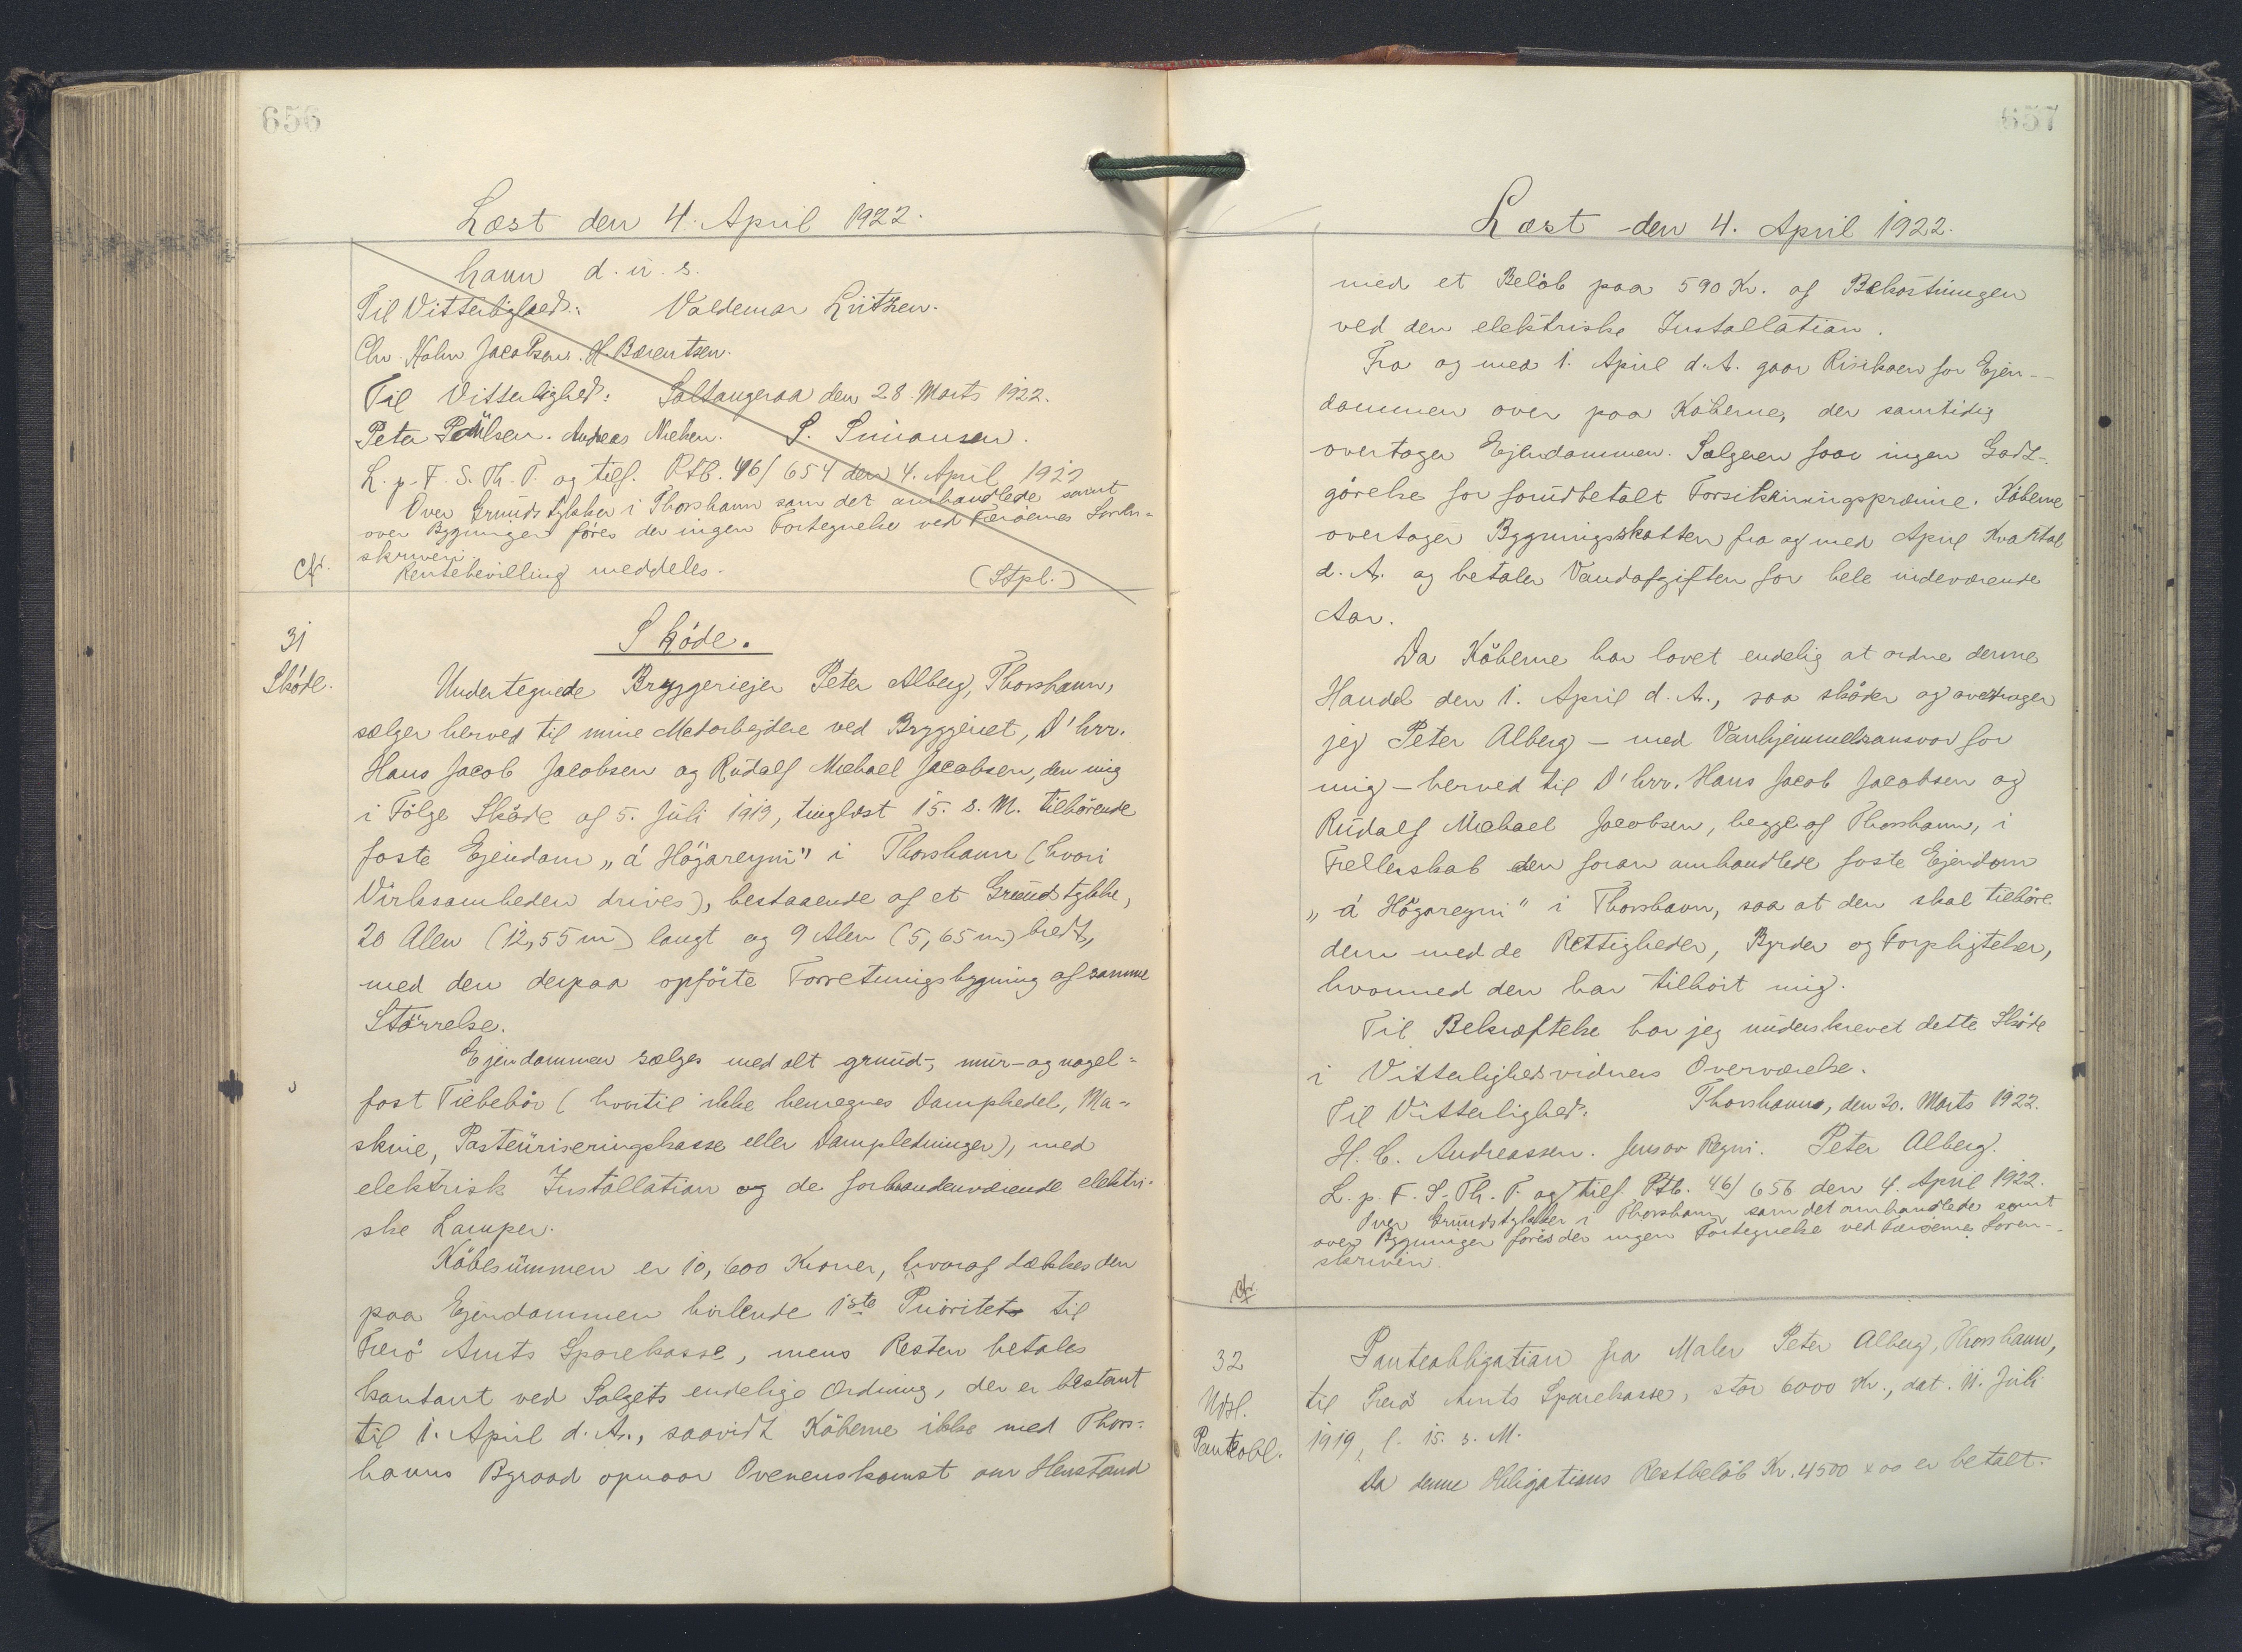 656
Læst den 4. April 1922.
havn d. u. s.
Til Vitterlighed: Valdemar Lützen.
Chr. Holm Jacobsen. H. Bærentsen.
Til Vitterlighed: Saltangeraa den 28 Marts 1922.
Peter Poulsen. Andreas Nielsen. S. Simonsen.
L. p. F. S. Th. T. og tilf. Ptb. 46/654 den 4. April 1922
Over Grundstykker i Thorshavn som det omhandlede samt
over Bygninger føres der ingen Fortegnelse ved Færøernes Soren-
skriveri.
Cfr. Rentebevilling meddeles. (Stpl.)
31
Skøde.
Skøde.
Undertegnede Bryggeriejer Peter Alberg, Thorshavn,
sælger herved til mine Medarbejdere ved Bryggeriet, D'hrr.
Hans Jacob Jacobsen og Rudolf Michael Jacobsen, den mig
i Følge Skøde af 5. Juli 1913, tinglæst 15. s. M. tilhørende
faste Ejendom „á Högareyni" i Thorshavn (hvori
Virksomheden drives), bestaaende af et Grundstykke,
20 Alen (12,55 m) langt og 9 Alen (5,65 m) bredt,
med den derpaa opførte Forretningsbygning af samme
Størrelse.
Ejendommen sælges med alt grund-, mur- og nagel-
fast Tilbehör (hvortil ikke henregnes Dampkedel, Ma-
skine, Pasteuriseringskasse eller Dampledninger), med
elektrisk Installation og de forhaandenværende elektri-
ske Lamper.
Købesummen er 10,600 Kroner, hvoraf dækkes den
paa Ejendommen hvilende 1ste Prioritet til
Færø Amts Sparekasse, mens Resten betales
kontant ved Salgets endelige Ordning, der er bestemt
til 1. April d. A., saavidt Køberne ikke med Thors-
havns Byraad opnaar Overenskomst om Henstand
657
Læst den 4. April 1922.
med et Beløb paa 590 Kr. af Bekostningen
ved den elektriske Installation.
Fra og med 1. April d. A. gaar Risikoen for Ejen-
dommen over paa Køberne, der samtidig
overtager Ejendommen. Sælgeren faar ingen Godt-
gørelse for forudbetalt Forsikringspræmie. Køberne
overtager Bygningsskatten fra og med April Kvartal
d. A. og betaler Vandafgiften for hele indeværende
Aar.
Da Køberne har lovet endelig at ordne denne
Handel den 1. April d. A., saa skøder og overdrager
jeg Peter Alberg – med Vanhjemmelsansvar for
mig – herved til D'hrr. Hans Jacob Jacobsen og
Rudolf Michael Jacobsen, begge af Thorshavn, i
Fællesskab den foran omhandlede faste Ejendom
„á Högareyni" i Thorshavn, saa at den skal tilhøre
dem med de Rettigheder, Byrder og Forpligtelser,
hvormed den har tilhørt mig.
Til Bekræftelse har jeg underskrevet dette Skøde
i Vitterlighedsvidners Overværelse.
Til Vitterlighed: Thorshavn, den 20. Marts 1922.
H. C. Andreassen. Jensar Regni. Peter Alberg.
L. p. F. S. Th. T. og tilf. Ptb. 46/656 den 4. April 1922.
Over Grundstykker i Thorshavn som det omhandlede samt
over Bygninger føres der ingen Fortegnelse ved Færøernes Soren-
skriveri.
Cfr.
32
Udsl.
Panteobl.
Panteobligation fra Maler Peter Alberg, Thorshavn,
til Færø Amts Sparekasse, stor 6000 Kr., dat. 11. Juli
1919, l. 15. s. M.
Da denne Obligations Restbeløb Kr. 4500 x 00 er betalt